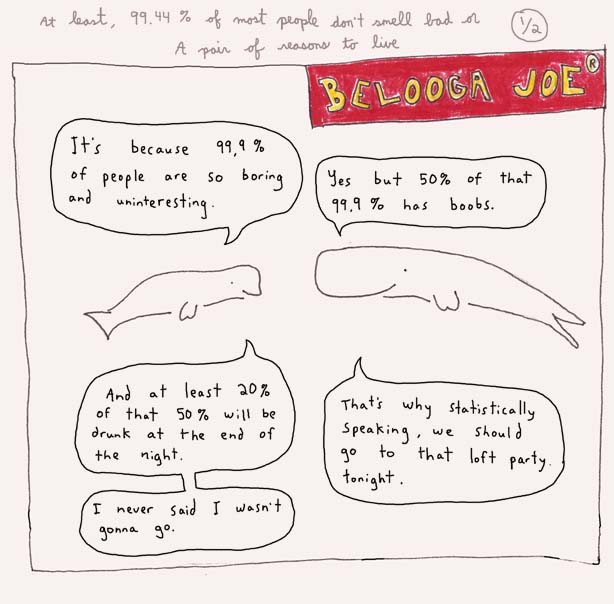 At least, 99.44 % of most people don't smell bad or
A pair of reasons to live
1/2
BELOOGA JOE®
It's because 99,9 %
of people are so boring
and uninteresting.
Yes but 50% of that
99,9 % has boobs.
And at least 20%
of that 50% will be
drunk at the end of
the night.
That's why statistically
speaking, we should
go to that loft party
tonight.
I never said I wasn't
gonna go.